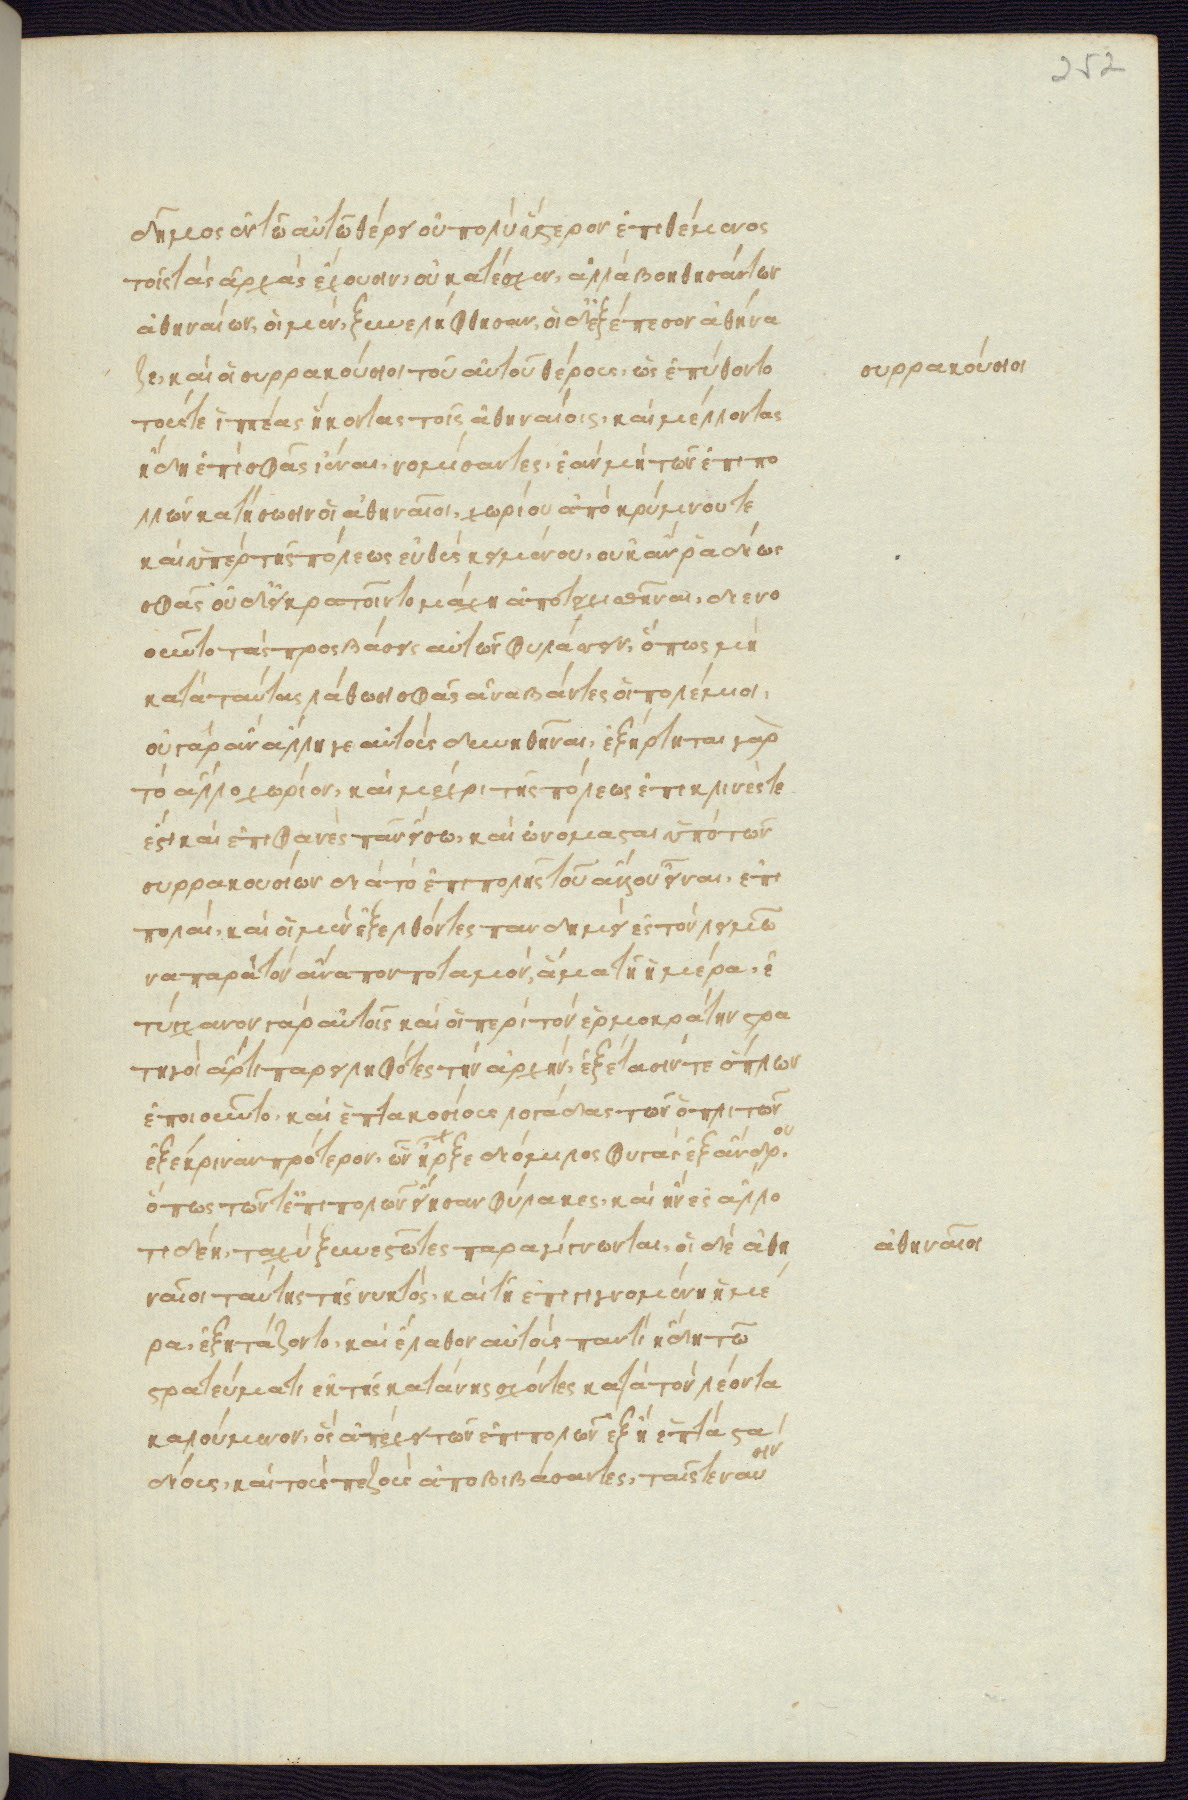 252
δῆμος ἐν τῶ αὐτῶ θέρει οὐ πολὺ ὕστερον ἐπιθέμενος
τοῖς τὰς ἀρχὰς ἔχουσιν, οὐ κατέσχεν, ἀλλὰ βοηθησάντων
ἀθηναίων, οἱ μὲν, ξυνελήφθησαν, οἱ δ' ἐξέπεσον ἀθήνα
ζε, καὶ οἱ συρρακούσιοι τοῦ αὐτοῦ θέρους, ὡς ἐπύθοντο
συρρακούσιοι
τούς τε ἱππέας ἥκοντας τοῖς ἀθηναίοις, καὶ μέλλοντας
ἤδη ἐπὶ σφᾶς ἰέναι, νομίσαντες, ἐὰν μὴ τῶν ἐπιπο
λλῶν κατήσωσιν οἱ ἀθηναῖοι, χωρίου ἀποκρύμνου τε
καὶ ὑπὲρ τῆς πόλεως εὐθὺς κειμένου, οὐκ ἂν ῥαδίως
σφᾶς οὐδ' εἰ κρατοῖντο μάχη ἀποτειχισθῆναι, διενο
οῦντο τὰς προσβάσεις αὐτῶν φυλάσσειν, ὅπως μὴ
κατὰ ταύτας λάθωσι σφᾶς ἀναβάντες οἱ πολέμιοι,
οὐ γὰρ ἂν ἄλλη γε αὐτοὺς δυνηθῆναι, ἐξήρτηται γὰρ
τὸ ἄλλο χωρίον, καὶ μέχρι τῆς πόλεως ἐπικλινές τε
ἐστὶ καὶ ἐπιφανὲς πᾶν εἴσω, καὶ ὠνόμασται ὑπὸ τῶν
συρρακουσίων διὰ τὸ ἐπιπολῆς τοῦ ἄλλου εἶναι, ἐπι
πολαὶ, καὶ οἱ μὲν ἐξελθόντες πανδημεὶ ἐς τὸν λειμῶ
να παρὰ τὸν ἄναπον ποταμὸν, ἅμα τῆ ἡμέρα, ἐ
τύγχανον γὰρ αὐτοῖς καὶ οἱ περὶ τὸν ἑρμοκράτην στρα
τηγοὶ ἄρτι παρειληφότες τὴν ἀρχὴν, ἐξέτασίν τε ὅπλων
ἐποιοῦντο, καὶ ἑπτακοσίους λογάδας τῶν ὁπλιτῶν
ἐξέκριναν πρότερον, ὧν ἦρξε διόμιλος φυγὰς ἐξ ἄνδρου
ὅπως τῶν τε ἐπιπολῶν εἴησαν φύλακες, καὶ ἢν ἐς ἄλλο
τι δέη, ταχὺ ξυνεστῶτες παραγίγνωνται, οἱ δὲ ἀθη
ἀθηναῖοι
ναῖοι ταύτης τῆς νυκτὸς, καὶ τῆ ἐπιγιγνομένη ἡμέ
ρα, ἐξητάζοντο, καὶ ἔλαθον αὐτοὺς παντὶ ἤδη τῶ
στρατεύματι ἐκ τῆς κατάνης σχόντες κατὰ τὸν λέοντα
καλούμενον, ὃς ἀπέχει τῶν ἐπιπολῶν ἓξ ἢ ἑπτὰ στα
δίους, καὶ τοὺς πεζοὺς ἀποβιβάσαντες, ταῖς τε ναυσὶν